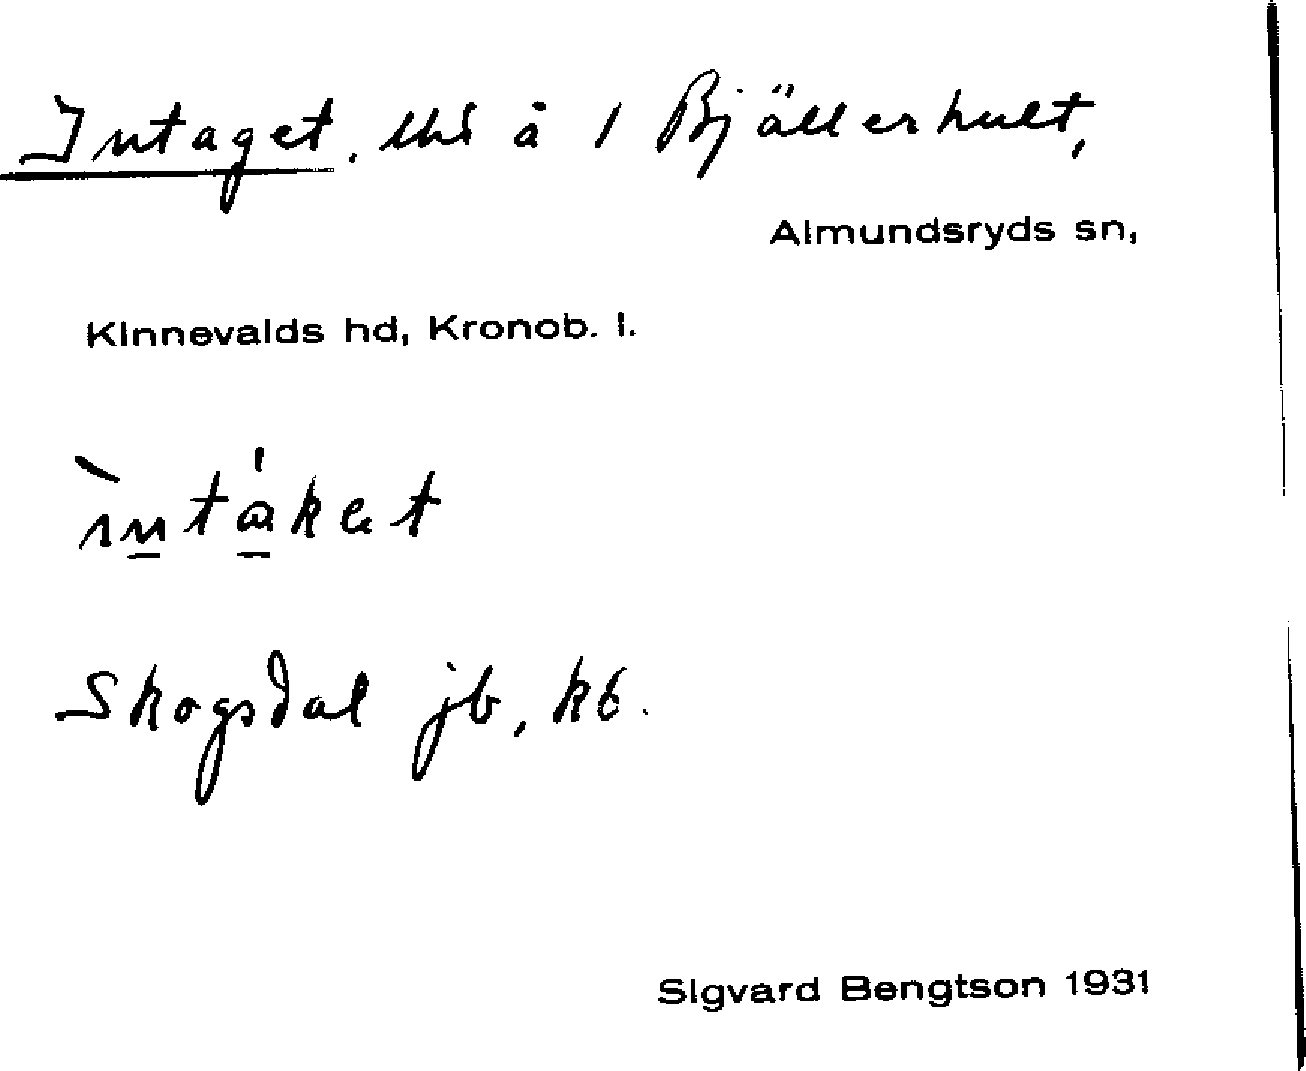 Intaget. lhs å 1 Bjällerhult,
Almundsryds sn,
Kinnevalds hd, Kronob. l.
Skogsdal jb, kb.
Sigvard Bengtson 1931